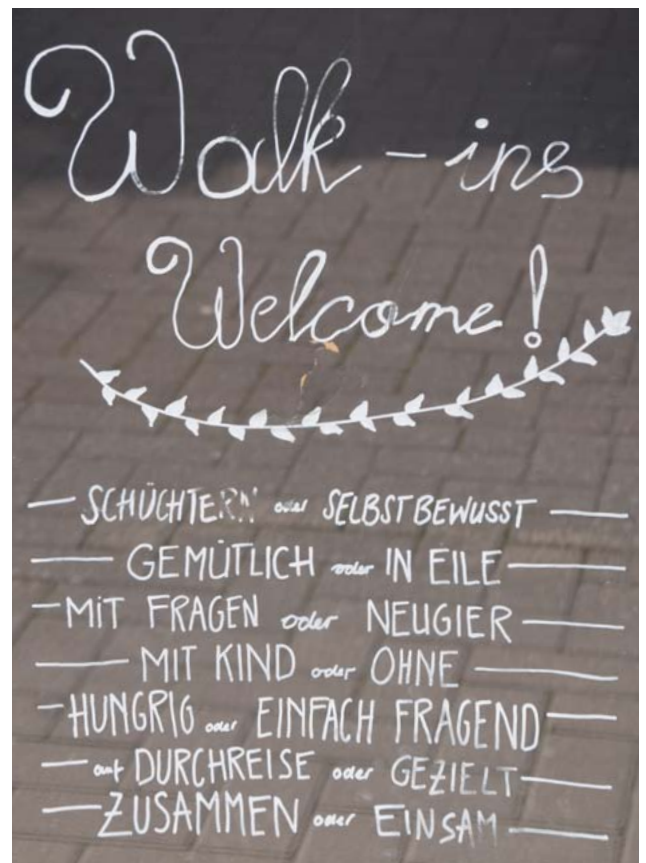 Walk-ins
Welcome!
SCHÜCHTERN oder SELBSTBEWUSST
GEMÜTLICH oder IN EILE
MIT FRAGEN oder NEUGIER
MIT KIND oder OHNE
HUNGRIG oder EINFACH FRAGEND
auf DURCHREISE oder GEZIELT
ZUSAMMEN oder EINSAM